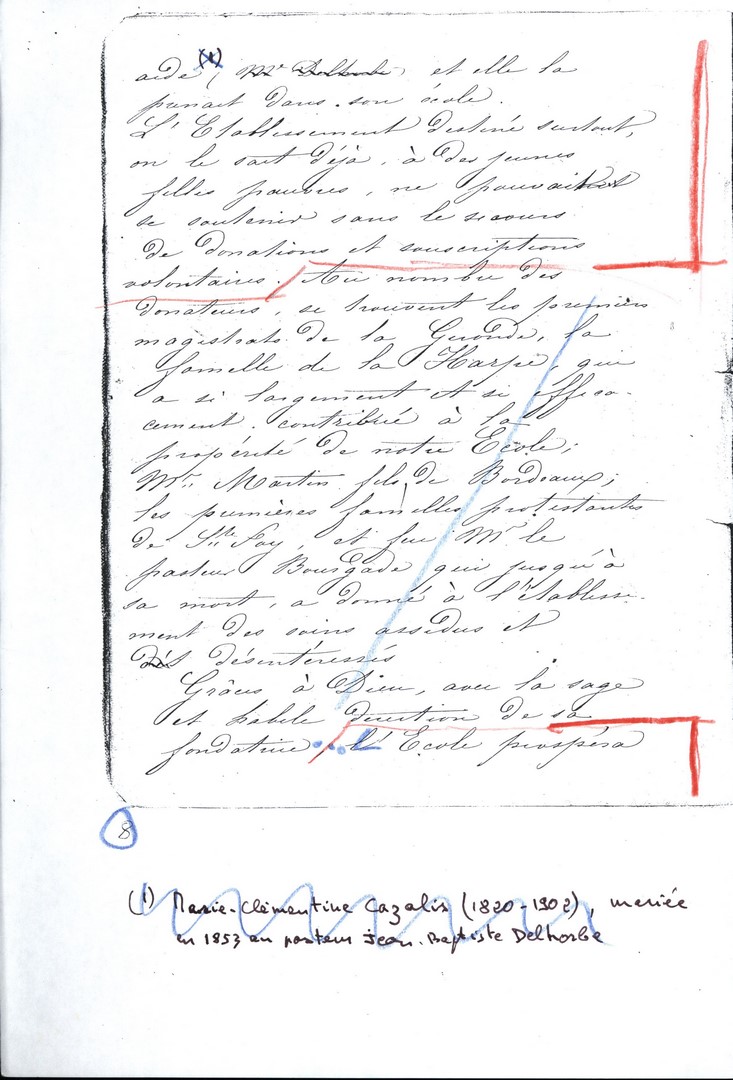 aidé (1), Mr Delhorbe, et elle la
prenait dans son école.
L'Etablissement destiné surtout,
on le sait déjà, à des jeunes
filles pauvres, ne pouvait
se soutenir sans le secours
de donations et souscriptions
volontaires. Au nombre des
donateurs, se trouvent les premiers
magistrats de la Gironde, la
famille de la Harpe, qui
a si largement et si effica-
cement contribué à la
propérité de notre Ecole;
Mrs Martin fils, de Bordeaux;
les premières familles protestantes
de Ste Foy, et feu Mr le
pasteur Bourgade qui jusqu'à
sa mort, a donné à l'établisse-
ment des soins assidus et
désintéressés
Grâces à Dieu, avec la sage
et habile direction de sa
fondatrice, ... L'Ecole prospéra
8
(1) Marie-Clémentine Cazalis (1820-1902), mariée
en 1853 au pasteur Jean-Baptiste Delhorbe